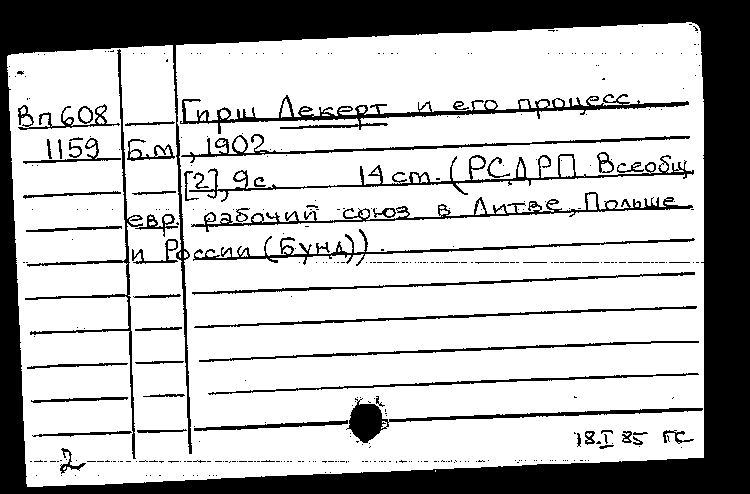 Вп 608 Гирш Лекерт и его процесс.
1159 Б.м., 1902
[2], 9 с. 14 ст. (РСДРП. Всеобщ
евр. рабочий союз в Литве, Польше
и России (Бунд)).
18.I 85 ГС
2